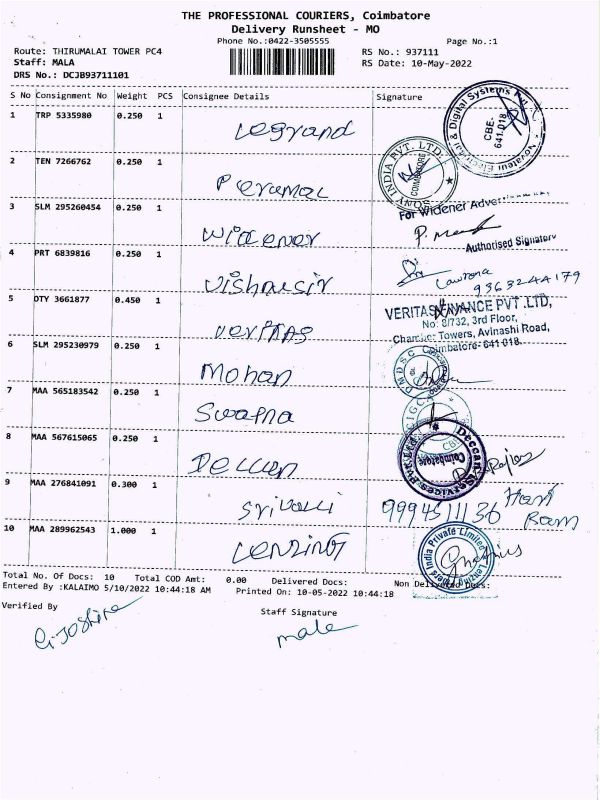 THE PROFESSIONAL COURIERS, Coimbatore
Delivery Runsheet - MO
Phone No.:0422-3505555
Page No.:1
Route: THIRUMALAI TOWER PC4
RS No.: 937111
Staff: MALA
RS Date: 10-May-2022
DRS No.: DCJB93711101
S No Consignment No Weight PCS Consignee Details Signature
1 TRP 5335980 0.250 1 Legrand
Novateur Electrical & Digital Systems Pvt CBE-641.018
2 TEN 7266762 0.250 1 Perumal
SONY INDIA PVT. LTD. COIMBATORE
3 SLM 295260454 0.250 1 Widener
For Widener
P.
Authorised Signatory
4 PRT 6839816 0.250 1 Vishnusir
9363244179
5 OTY 3661877 0.450 1 Veritas
VERITAS FINANCE PVT .LTD,
No: 8/732, 3rd Floor,
Towers, Avinashi Road,
Coimbatore- 641 018.
6 SLM 295230979 0.250 1 Mohan
7 MAA 565183542 0.250 1 Swapna
8 MAA 567615065 0.250 1 Deccan
Deccan Services Pvt Ltd Coimbatore
9 MAA 276841091 0.300 1 Srivalli
9994511136 Hari
Ram
10 MAA 289962543 1.000 1 Lenzing
Lenzing India Private Limited
Total No. Of Docs: 10 Total COD Amt: 0.00 Delivered Docs: Non Delivered Docs:
Entered By :KALAIMO 5/10/2022 10:44:18 AM Printed On: 10-05-2022 10:44:18
Verified By
Staff Signature
mala